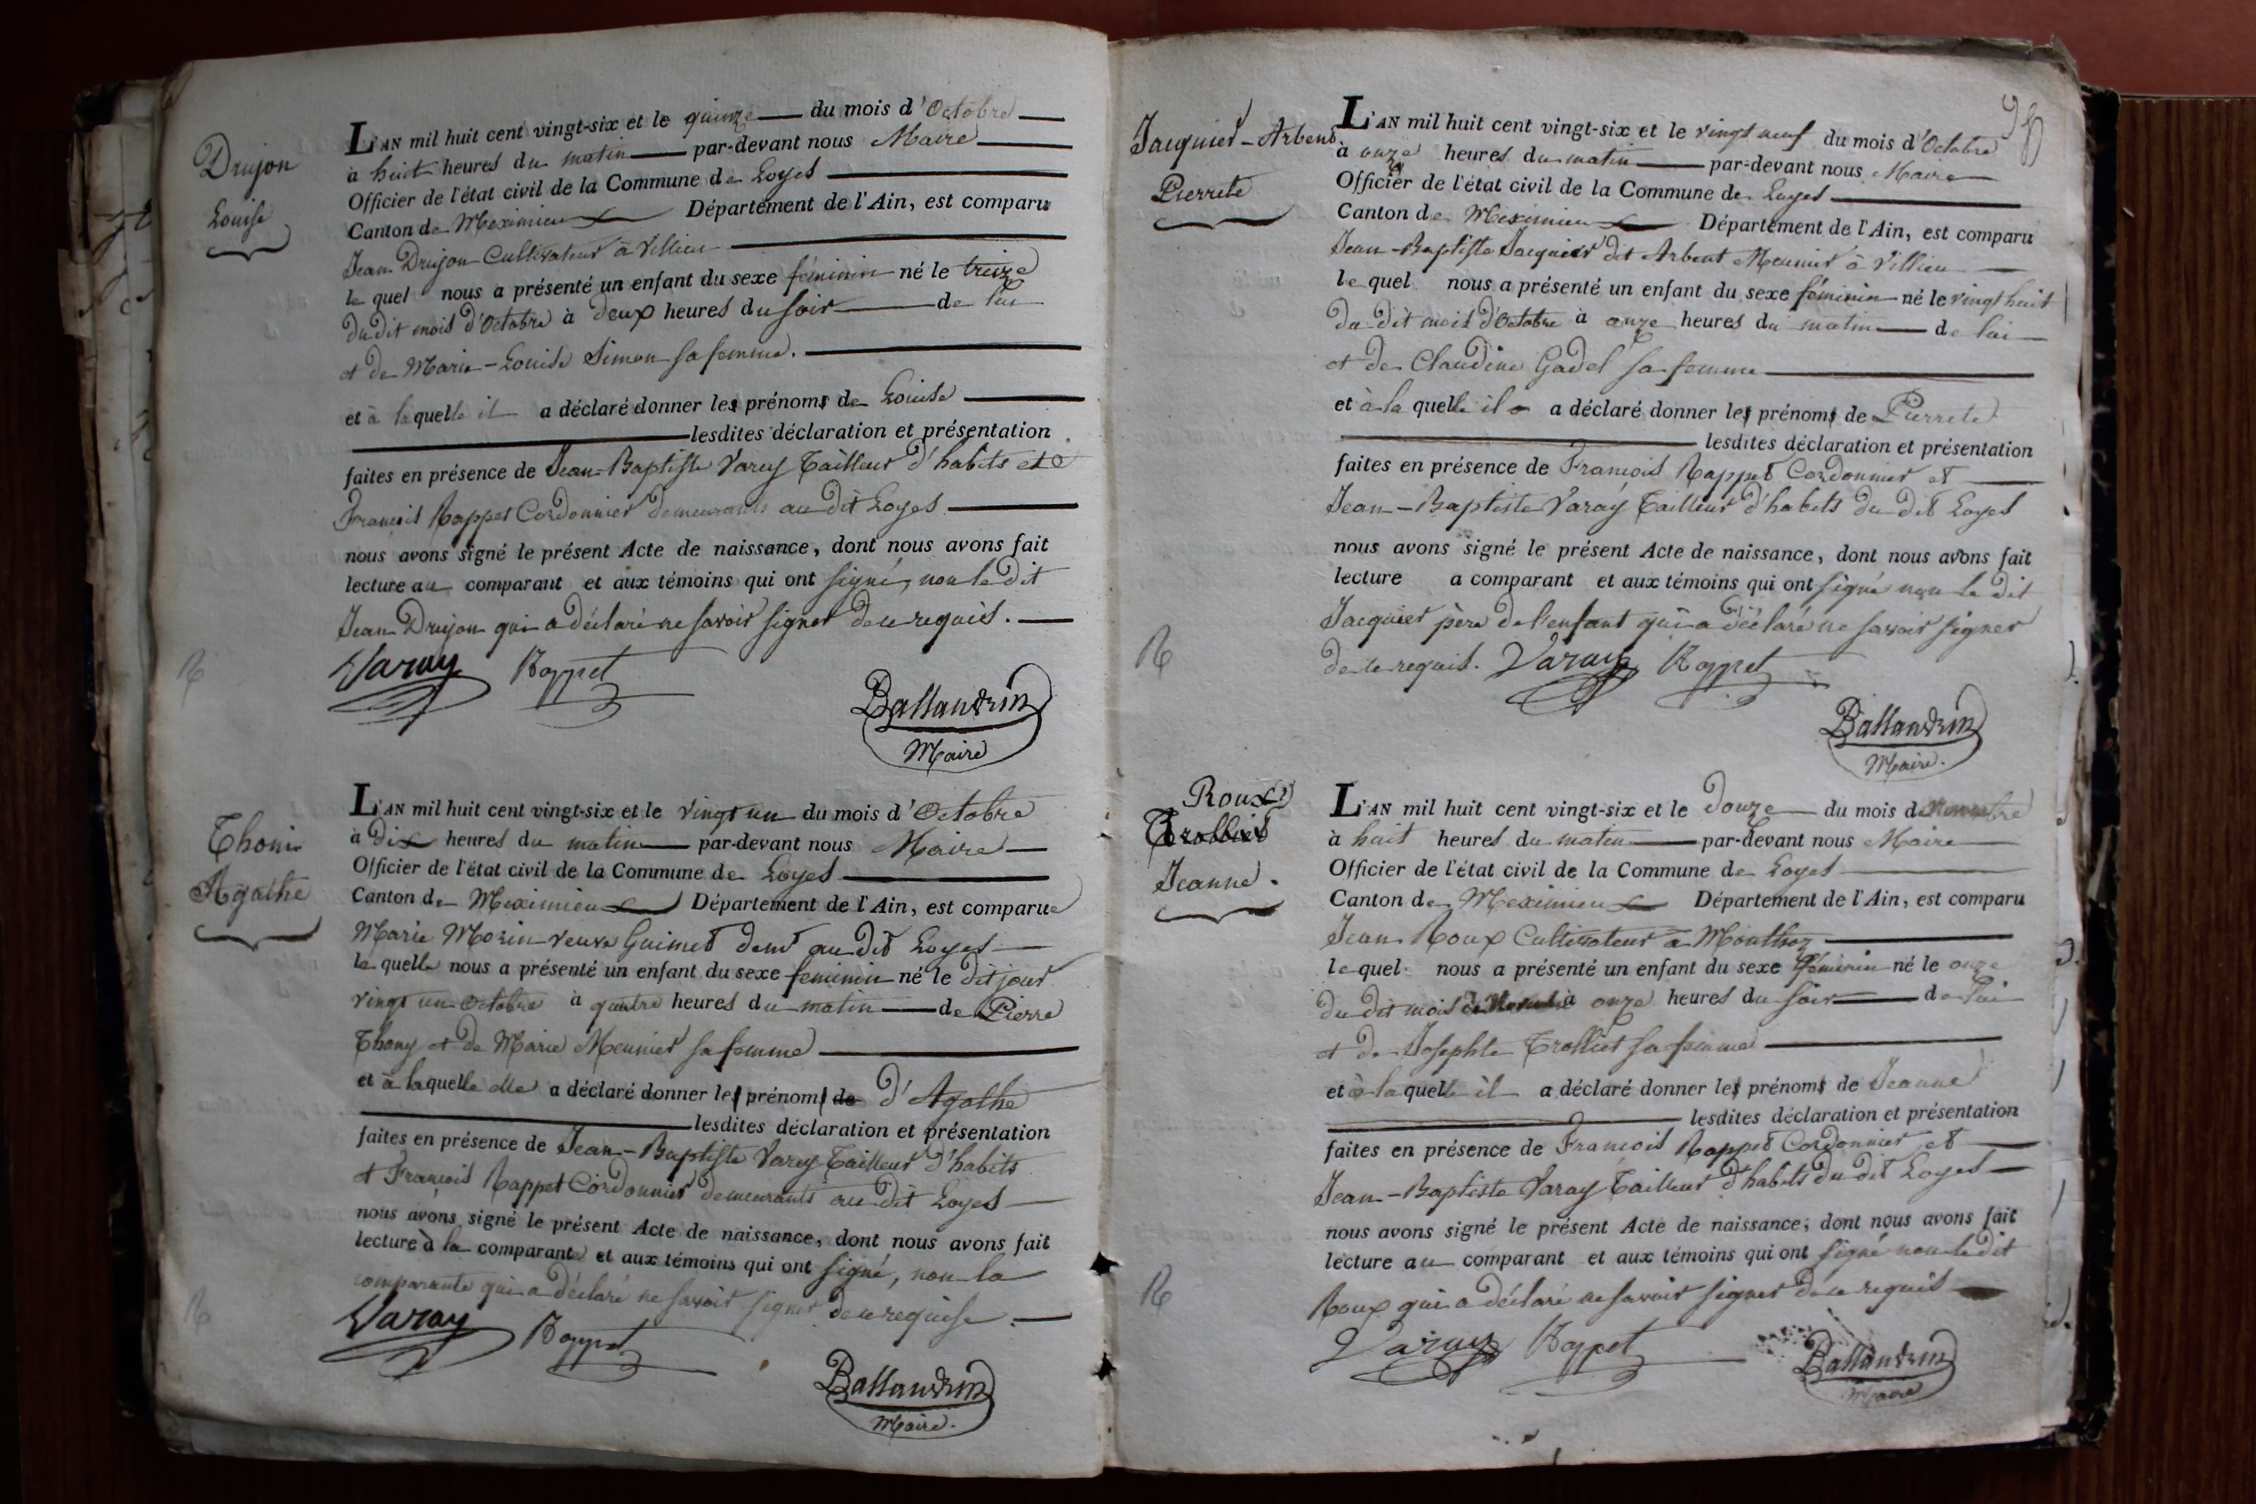 Drujon
Louise
L'AN mil huit cent vingt-six et le quinze du mois d'Octobre
à huit heures du matin par-devant nous Maire
Officier de l'état civil de la Commune de Loyes
Canton de Meximieux Département de l'Ain, est comparu
Jean Drujon Cultivateur à Villieu
le quel nous a présenté un enfant du sexe féminin né le treize
du dit mois d'Octobre à deux heures du soir de lui
et de Marie-Louise Simon sa femme.
et à laquelle il a déclaré donner les prénoms de Louise
lesdites déclaration et présentation
faites en présence de Jean-Baptiste Varay Tailleur d'habits et
François Rappet Cordonnier demeurants au dit Loyes
nous avons signé le présent Acte de naissance, dont nous avons fait
lecture au comparant et aux témoins qui ont signé, non le dit
Jean Drujon qui a déclaré ne savoir signer de ce requis.
Varay Rappet
Ballandrin
Maire
Thoni
Agathe
L'AN mil huit cent vingt-six et le vingt un du mois d'Octobre
à dix heures du matin par-devant nous Maire
Officier de l'état civil de la Commune de Loyes
Canton de Meximieux Département de l'Ain, est comparue
Marie Morin veuve Guimet demt au dit Loyes
la quelle nous a présenté un enfant du sexe feminin né le dit jour
vingt un octobre à quatre heures du matin de Pierre
Thony et de Marie Meunier sa femme
et à laquelle elle a déclaré donner les prénoms de d'Agathe
lesdites déclaration et présentation
faites en présence de Jean-Baptiste Varay Tailleur d'habits
et François Rappet Cordonnier demeurants au dit Loyes
nous avons signé le présent Acte de naissance, dont nous avons fait
lecture à la comparante et aux témoins qui ont signé, non la
comparante qui a déclaré ne savoir signer de ce requise.
Varay Rappet
Ballandrin
Maire.
Jacquier-Arbent
Pierrete
L'AN mil huit cent vingt-six et le vingt neuf du mois d'Octobre
à onze heures du matin par-devant nous Maire
Officier de l'état civil de la Commune de Loyes
Canton de Meximieux Département de l'Ain, est comparu
Jean-Baptiste Jacquier dit Arbent Meunier à Villieu
le quel nous a présenté un enfant du sexe féminin né le vingt huit
du dit mois d'Octobre à onze heures du matin de lui
et de Claudine Gadel sa femme
et à la quelle il a déclaré donner les prénoms de Pierrete
lesdites déclaration et présentation
faites en présence de François Rappet Cordonnier et
Jean-Baptiste Varay Tailleur d'habits du dit Loyes
nous avons signé le présent Acte de naissance, dont nous avons fait
lecture a comparant et aux témoins qui ont signé non le dit
Jacquier père de l'enfant qui a déclaré ne savoir signer
de ce requis. Varay Rappet
Ballandrin
Maire.
Roux
Trolliet
Jeanne.
L'AN mil huit cent vingt-six et le douze du mois de Novembre
à huit heures du matin par-devant nous Maire
Officier de l'état civil de la Commune de Loyes
Canton de Meximieux Département de l'Ain, est comparu
Jean Roux Cultivateur à Monthoz
le quel nous a présenté un enfant du sexe féminin né le onze
du dit mois à onze heures du soir de lui
et de Josephte Trolliet sa femme
et à la quelle il a déclaré donner les prénoms de Jeanne
lesdites déclaration et présentation
faites en présence de François Rappet Cordonnier et
Jean-Baptiste Varay Tailleur d'habits du dit Loyes
nous avons signé le présent Acte de naissance, dont nous avons fait
lecture au comparant et aux témoins qui ont signé non le dit
Roux qui a déclaré ne savoir signer de ce requis
Varay Rappet
Ballandrin
Maire